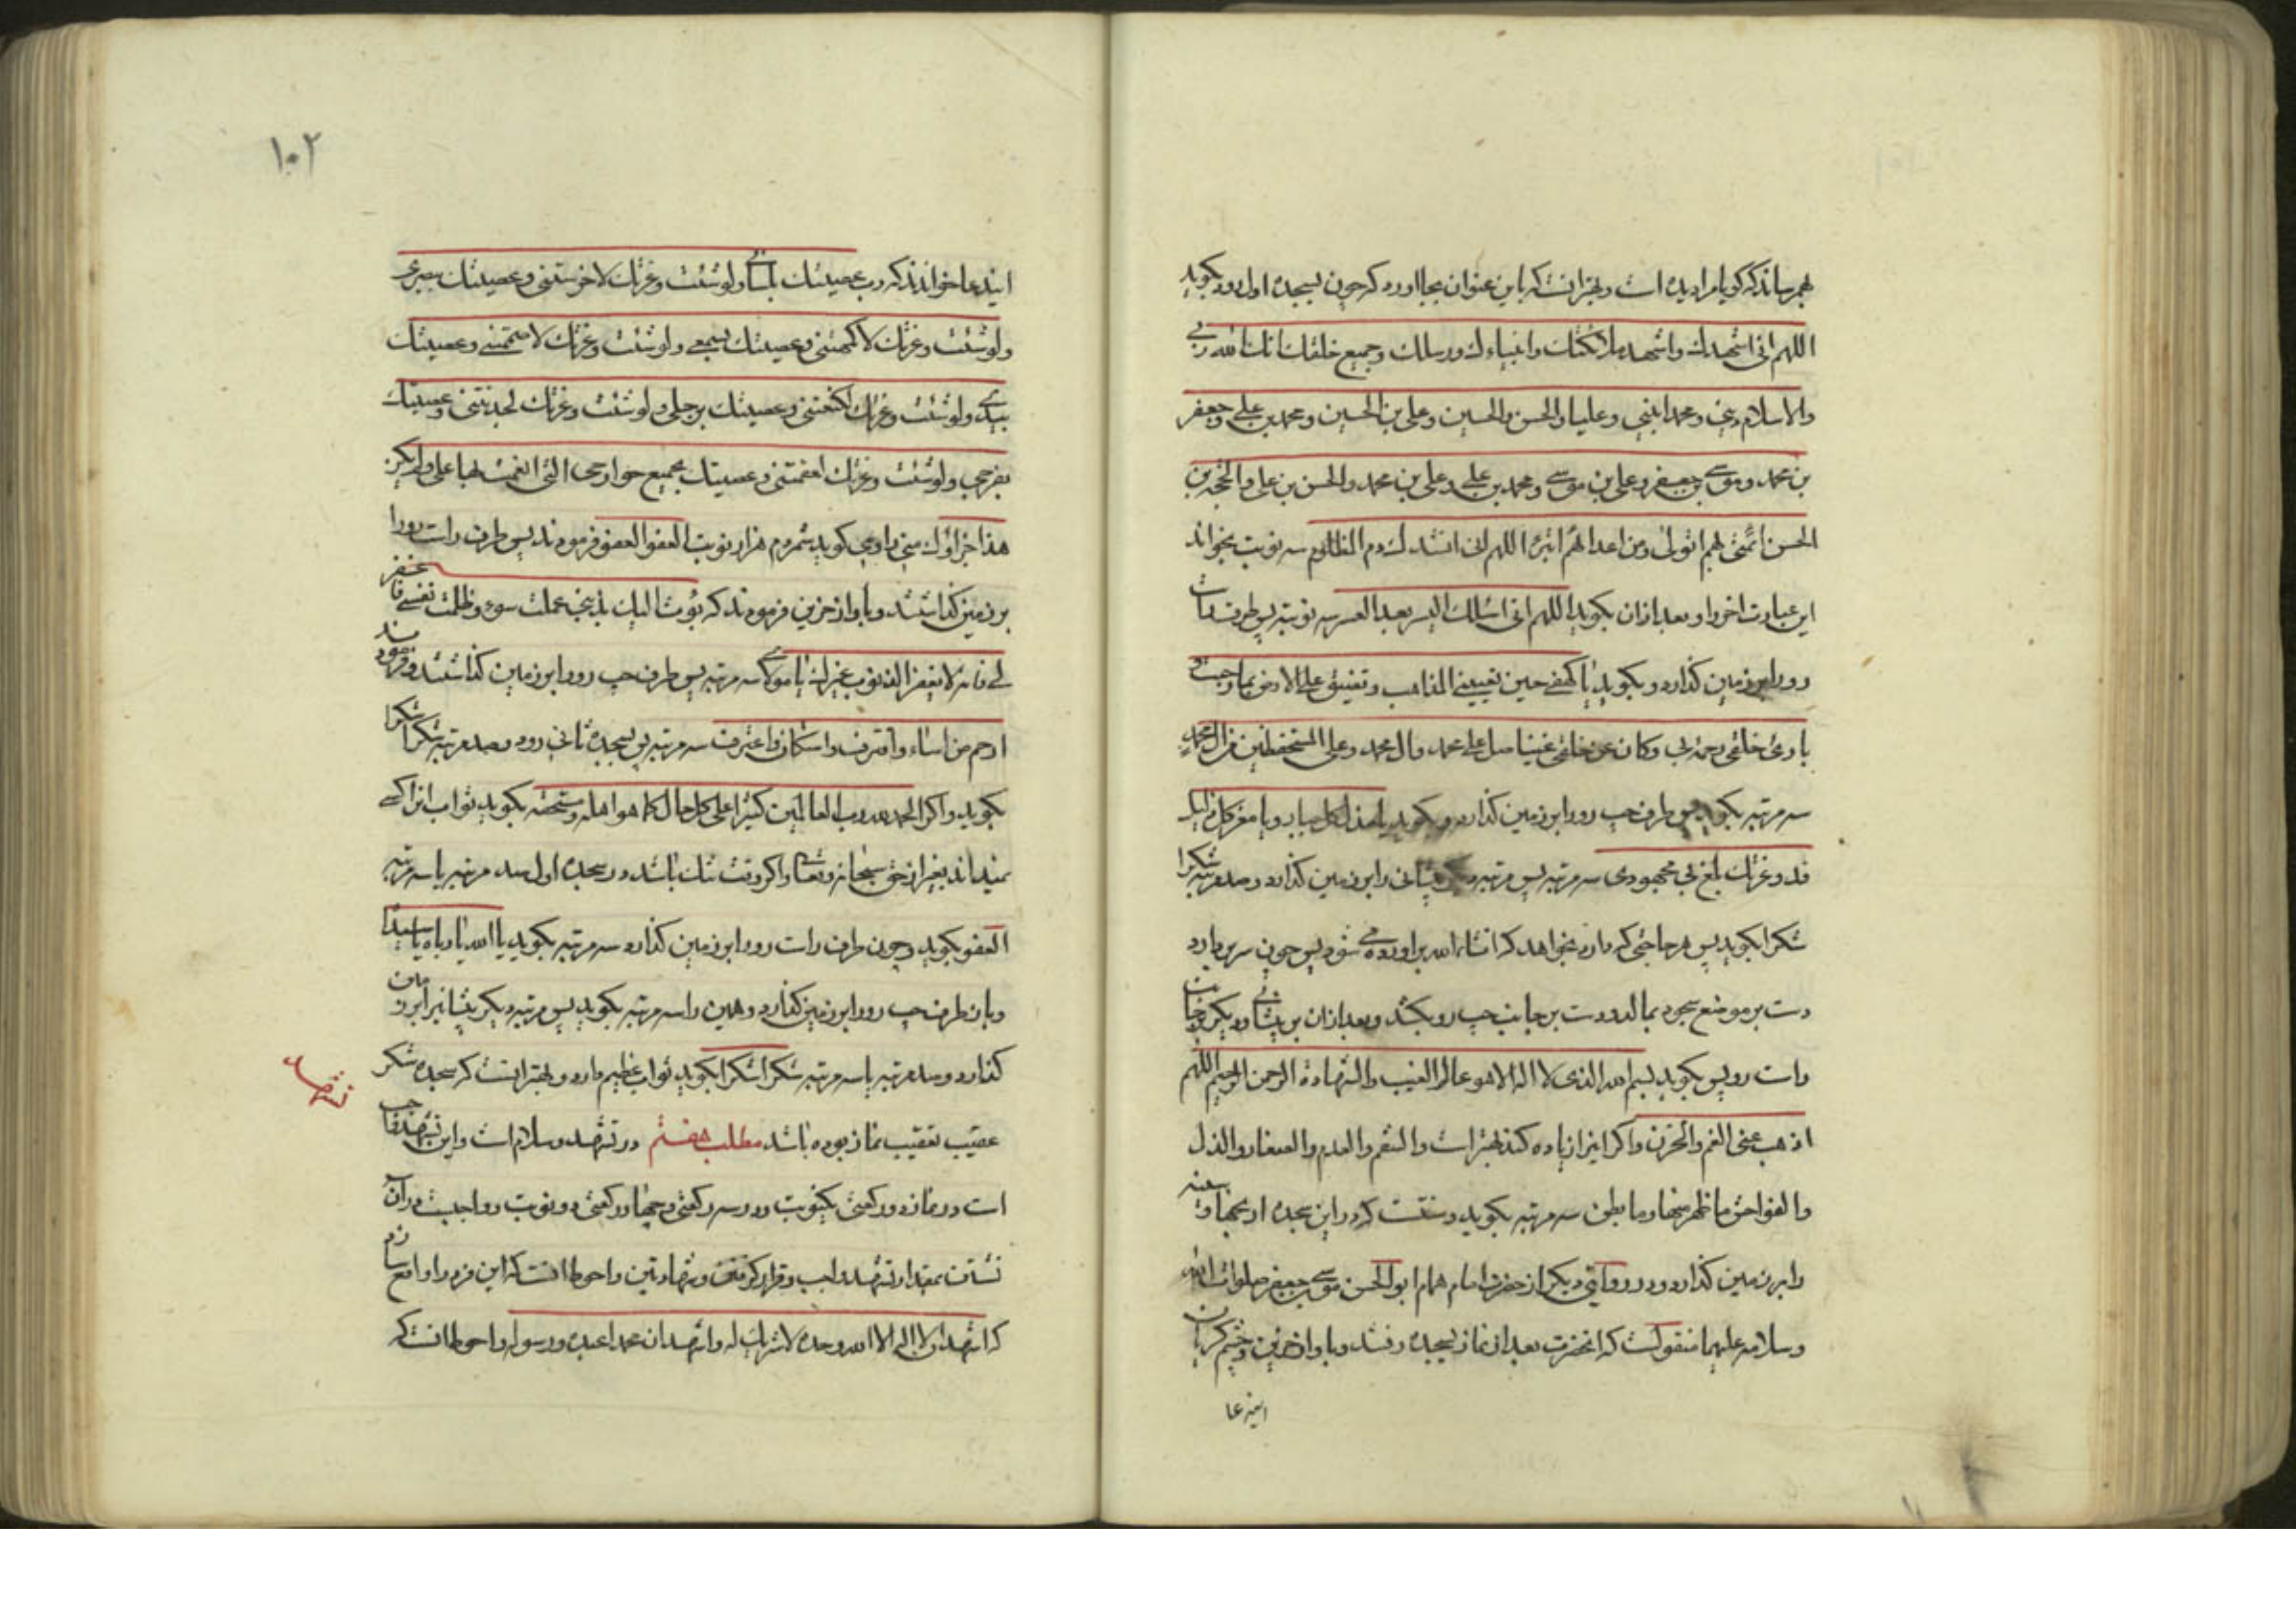 بهم رساند که گویا مرا دیده است و بهتر آنست که باین عنوان بجا آورد که چون بسجده اول رود بگوید
اللهم انی اشهدك واشهد ملائکتك وانبیاءك ورسلك وجمیع خلقك انك الله ربی
والاسلام دینی ومحمدا نبیی وعلیا والحسن والحسین وعلی بن الحسین ومحمد بن علی وجعفر
بن محمد وموسی بن جعفر وعلی بن موسی ومحمد بن علی وعلی بن محمد والحسن بن علی والحجة بن
الحسن ائمتی بهم اتولی ومن اعدائهم اتبرء اللهم انی انشدك دم المظلوم سه نوبت بخواند
این عبارت اخر را و بعد ازان بگوید اللهم انی اسئلك الیسر بعد العسر سه نوبت پس طرف راست
رو را بر زمین گذارد و بگوید یا کهفی حین تعیینی المذاهب وتضیق علی الارض بما رحبت و
یا بارئ خلقی رحمة بی وکان عن خلقی غنیا صل علی محمد وال محمد وعلی المستحفظین من ال محمد
سه مرتبه بگوید پس طرف چپ رو را بر زمین گذارد و بگوید یا مذل کل جبار ویا معز کل ذلیل
قد وعزتك بلغ بی مجهودی سه مرتبه پس مرتبه دیگر پیشانی را بر زمین گذارد و صد مرتبه شکرا
شکرا بگوید پس هر حاجتی که دارد بخواهد که انشاء الله براورده می شود پس چون سر بردارد
دست بر موضع سجود بمالد و دست بر جانب چپ رو بکشد و بعد ازان بر پیشانی و دیگر بر جانب
راست رو پس بگوید بسم الله الذی لا اله الا هو عالم الغیب والشهادة الرحمن الرحیم اللهم
اذهب عنی الغم والحزن واکر اینرا زیاده کند بهتر است والسقم والعدم والصغار والذل
والفواحش ما ظهر منها وما بطن سه مرتبه بگوید و سنتست که در این سجده ارنجها و سینه
را بر زمین گذارد و در روایتی دیگر از حضرت امام همام ابو الحسن موسی بن جعفر صلوات الله
وسلامه علیهما منقولست که انحضرت بعد از نماز بسجده رفتند و باواز حزین و چشم گریان
این دعا
۱۰۲
این دعا خواندند که رب عصیتك بلسانی ولو شئت وعزتك لاخرستنی وعصیتك ببصری
ولو شئت وعزتك لاکمهتنی وعصیتك بسمعی ولو شئت وعزتك لاصممتنی وعصیتك
بیدی ولو شئت وعزتك لکنعتنی وعصیتك برجلی ولو شئت وعزتك لجذمتنی وعصیتك
بفرجی ولو شئت وعزتك لعقمتنی وعصیتك بجمیع جوارحی التی انعمت بها علی ولم یکن
هذا جزاؤك منی راوی گوید شمردم هزار نوبت العفو العفو فرمودند پس طرف راست رو را
بر زمین گذاشتند و باواز حزین فرمودند که بؤت الیك بذنبی عملت سوء وظلمت نفسی فاغفر
لی فانه لا یغفر الذنوب غیرك یا مولای سه مرتبه پس طرف چپ رو را بر زمین گذاشتند و فرمودند
ارحم من اساء واقترف واستکان واعترف سه مرتبه پس بسجده ثانی رود و صد مرتبه شکرا شکرا
بگوید و اکر الحمد لله رب العالمین کثیرا علی کل حال کما هو اهله ومستحقه بگوید ثواب انرا کسی
نمیداند بغیر از حق سبحانه وتعالی و اکر وقت تنك باشد در سجده اول صد مرتبه یا سه مرتبه
العفو بگوید و چون طرف راست رو را بر زمین گذارد سه مرتبه بگوید یا الله یا رباه یا سیداه
و بان طرف چپ رو را بر زمین گذارد و همین را سه مرتبه بگوید پس مرتبه دیگر پیشانیرا بر زمین
گذارد و صد مرتبه یا سه مرتبه شکرا شکرا بگوید ثواب عظیم دارد و بهتر انست که سجده شکر
عقیب تعقیب نماز بوده باشد مطلب هفتم در تشهد و سلام است و این تشهد واجب
تشهد
است در نماز دو رکعتی یکنوبت و در سه رکعتی و چهار رکعتی دو نوبت و واجبست در آن
نشستن بمقدار تشهد واجب و قرار گرفتن و شهادتین و احوط انست که این فرد را واقع سازد
که اشهد ان لا اله الا الله وحده لا شریك له واشهد ان محمدا عبده ورسوله و احوط انست که